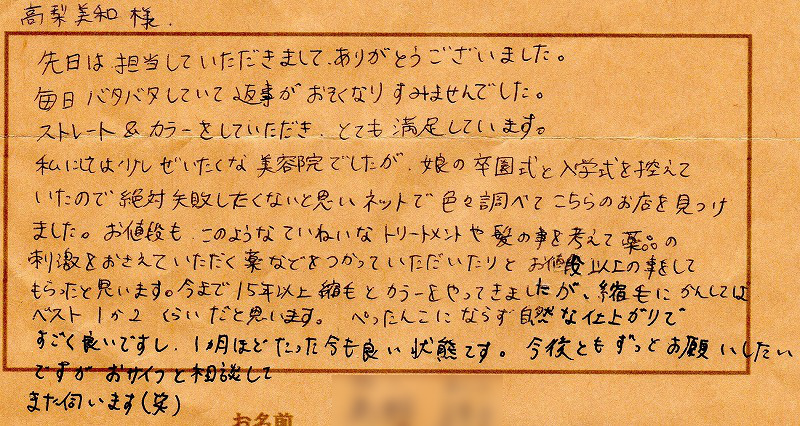 高梨美和 様.
先日は担当していただきまして、ありがとうございました。
毎日バタバタしていて返事がおそくなりすみませんでした。
ストレート&カラーをしていただき、とても満足しています。
私には少しぜいたくな美容院でしたが、娘の卒園式と入学式を控えて
いたので絶対失敗したくないと思いネットで色々調べてこちらのお店を見つけ
ました。お値段も、このようなていねいなトリートメントや髪の事を考えて薬品の
刺激をおさえていただく薬などをつかっていただいたりとお値段以上の事をして
もらったと思います。今まで15年以上縮毛とカラーをやってきましたが、縮毛にかんしては
ベスト1か2くらいだと思います。ぺったんこにならず自然な仕上がりで
すごく良いですし、1ヵ月ほどたった今も良い状態です。今後ともずっとお願いしたい
ですがおサイフと相談して
また伺います(笑)
お名前